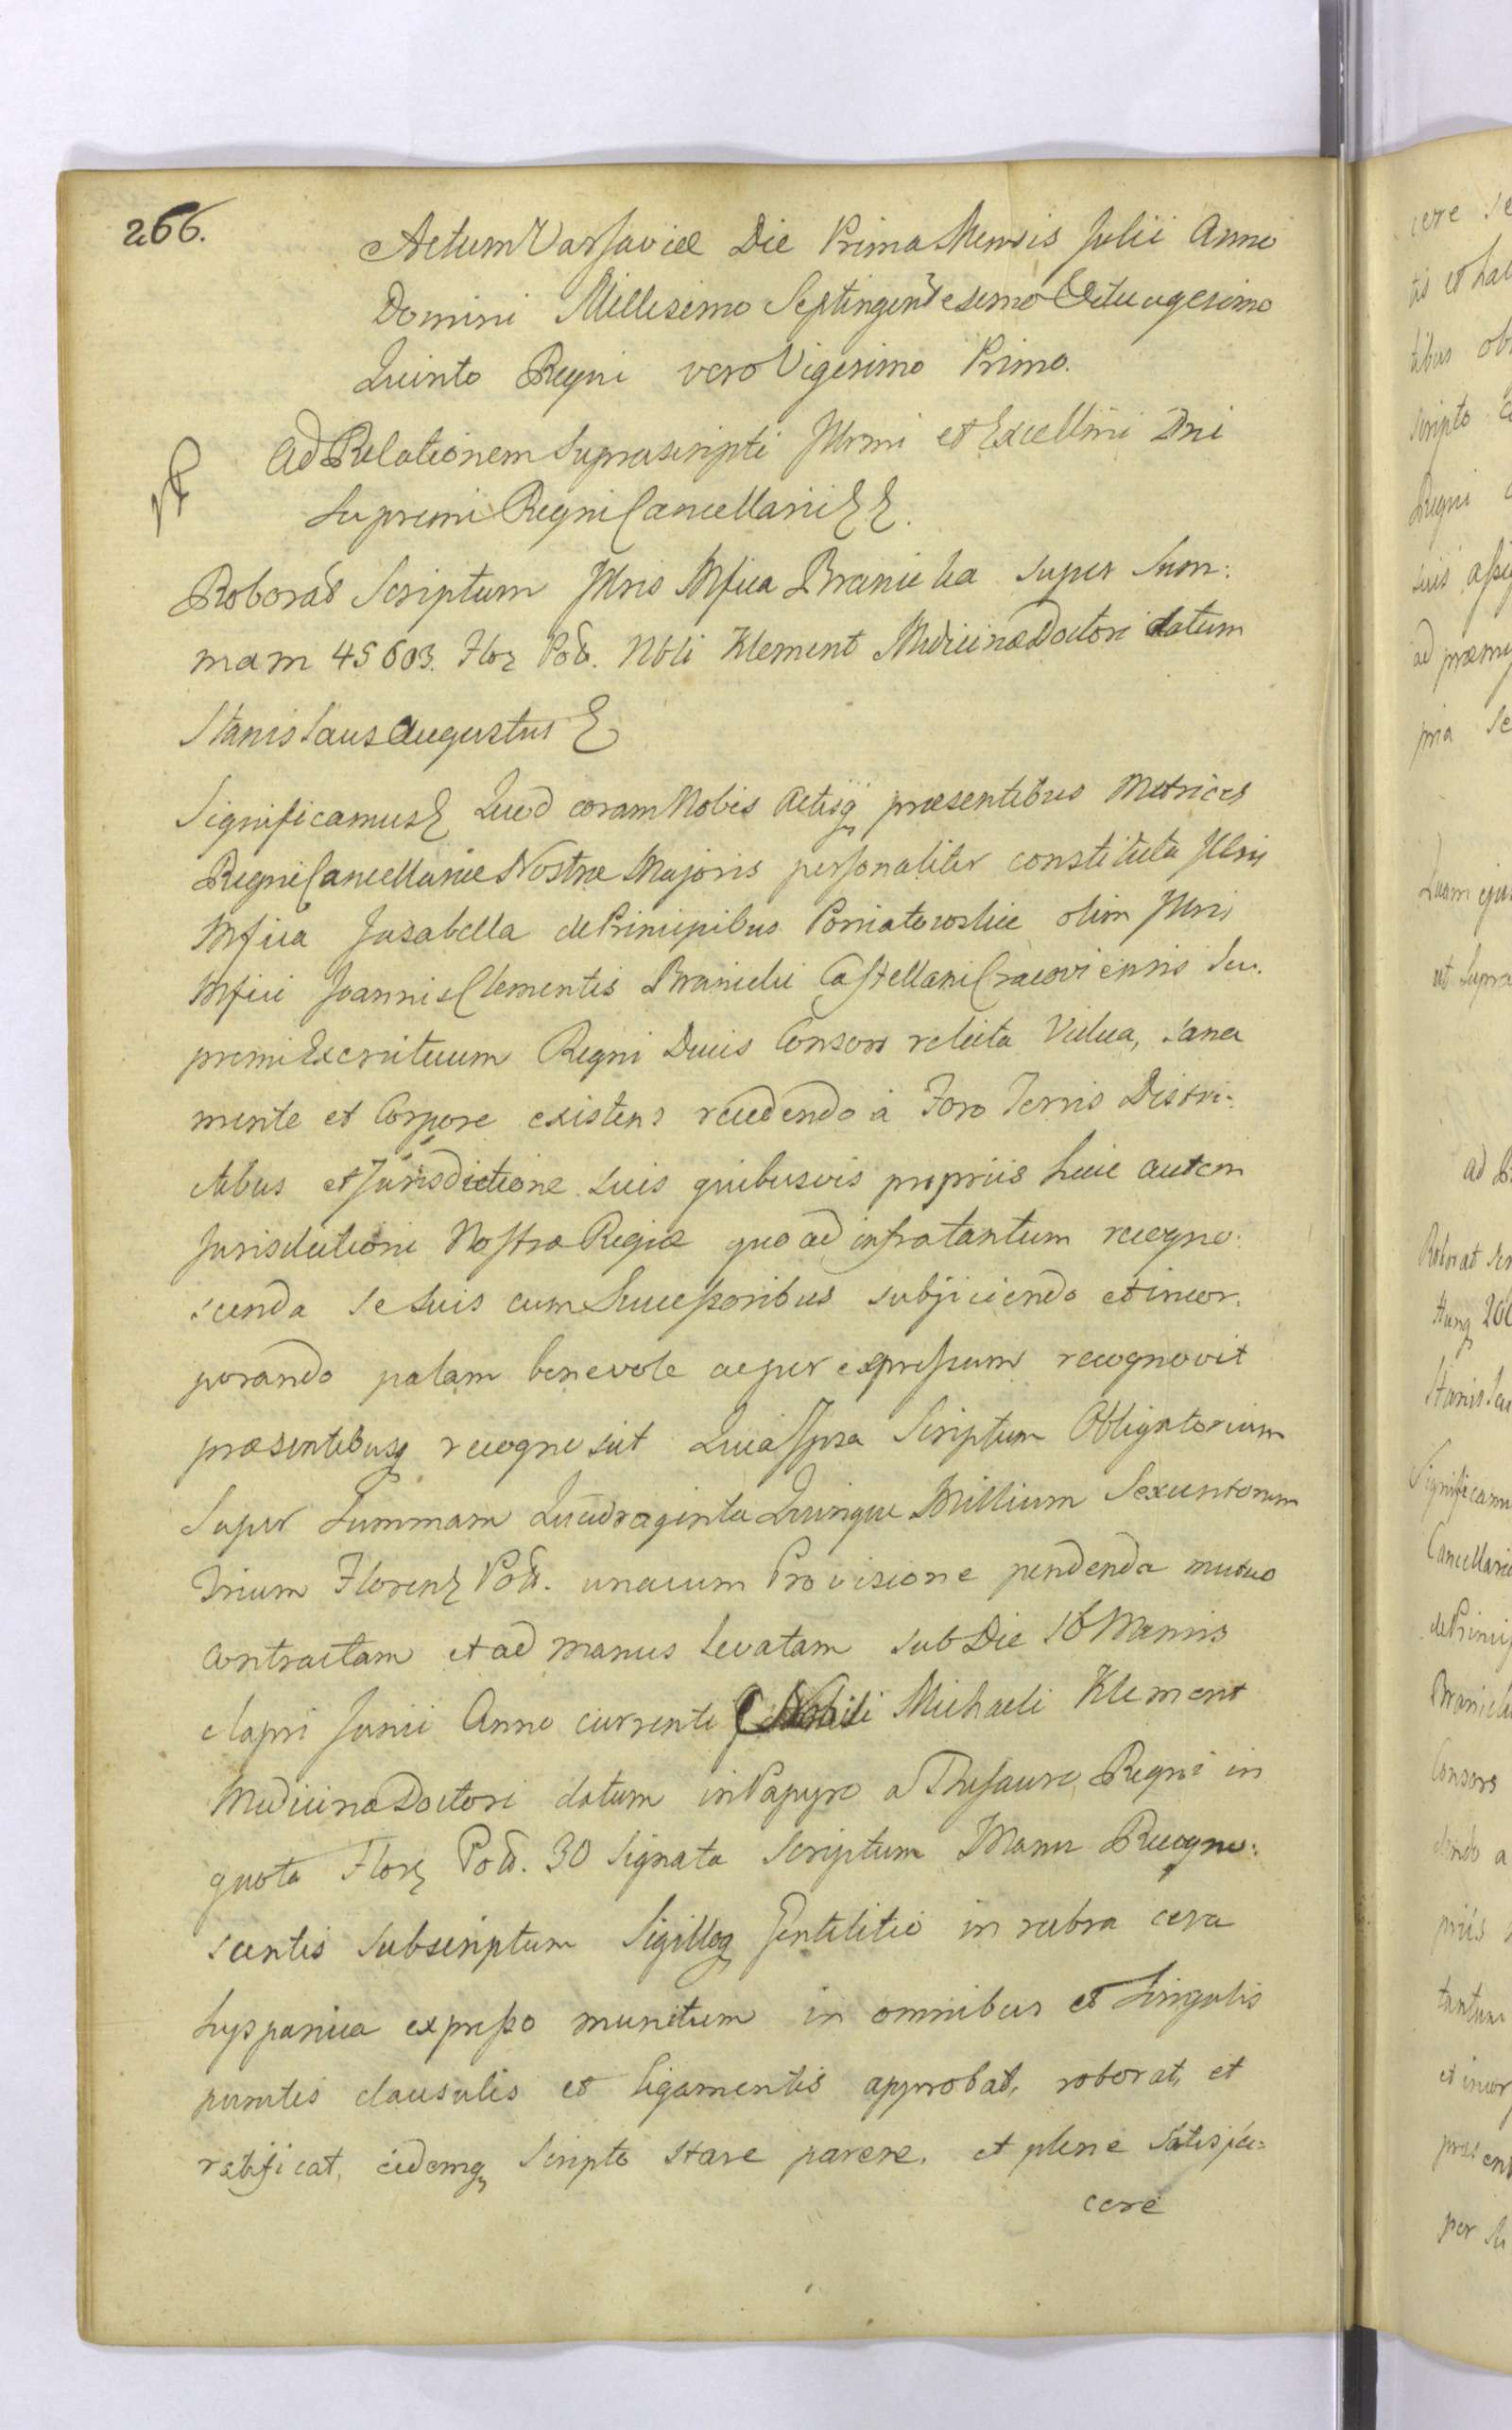 266.
Actum Varsaviæ Die Prima Mensis Julii Anno
Domini Millesimo Septingentesimo Octuagesimo
Quinto Regni vero Vigesimo Primo.
Ad Relationem Suprascripti Illrmi et Excellmi Dni
Supremi Regni Cancellarii
Roborat Scriptum Illris Mfica Branicka super Sum:
mam 45603. Flor Pol. Nbli Klement Medicinæ Doctori datum
Stanislaus Augustus
Significamus Quod coram Nobis Actisq præsentibus Metrices
Regni Cancellariæ Nostræ Majoris personaliter constituta Illris
Mfica Jzabella de Principibus Poniatowskie olim Illris
Mfici Joannis Clementis Branicki Castellani Cracoviensis Su.
premi Exercituum Regni Ducis Consors relicta Vidua, sana
mente et Corpore existens recedendo à Foro Terris Distri:
ctibus et Jurisdictione suis quibusvis propriis huic autem
Jurisdictioni Nostræ Regiæ quo ad infra tantum recogno:
scenda se suis cum Successoribus subjiciendo et incor.
porando palam benevole ac per expressum recognovit
præsentibusq recognoscit Quia Ipsa Scriptum Obligatorium
Super Summam Quadraginta Quinque Millium Sexcentorum
Trium Floren Pol. unacum Provisione pendenda mutuo
contractam et ad manus levatam sub Die 16 Mensis
elapsi Junii Anno currenti Nobili Michaeli Klement
Medicinæ Doctori datum in Papyro a Thesauro Regni in
quota Flor Pol. 30 signata Scriptum Manu Recogno:
scentis Subscriptum Sigilloq Gentilitio in rubra cera
hyspanica expresso munitum in omnibus et singulis
punctis clausulis et ligamentis approbat, roborat, et
ratificat, eidemq Scripto stare parere, et plene satisfa=
cere